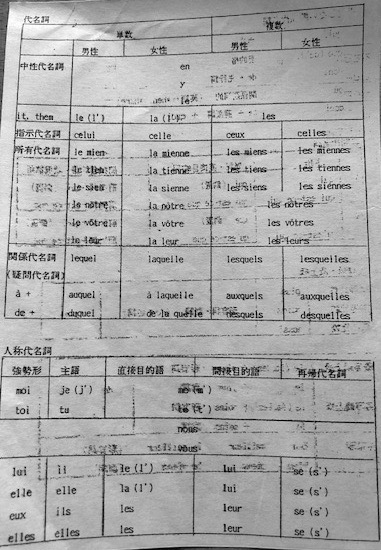 代名詞
単数 複数
男性 女性 男性 女性
中性代名詞 en
y
le
it, them le (l') la (l') les
指示代名詞 celui celle ceux celles
所有代名詞 le mien la mienne les miens les miennes
le tien la tienne les tiens les tiennes
le sien la sienne les siens les siennes
le nôtre la nôtre les nôtres
le vôtre la vôtre les vôtres
le leur la leur les leurs
関係代名詞 lequel laquelle lesquels lesquelles
(疑問代名詞)
à + auquel à laquelle auxquels auxquelles
de + duquel de la quelle desquels desquelles
人称代名詞
強勢形 主語 直接目的語 間接目的語 再帰代名詞
moi je (j') me (m')
toi tu te (t')
nous
vous
lui il le (l') lui se (s')
elle elle la (l') lui se (s')
eux ils les leur se (s')
elles elles les leur se (s')